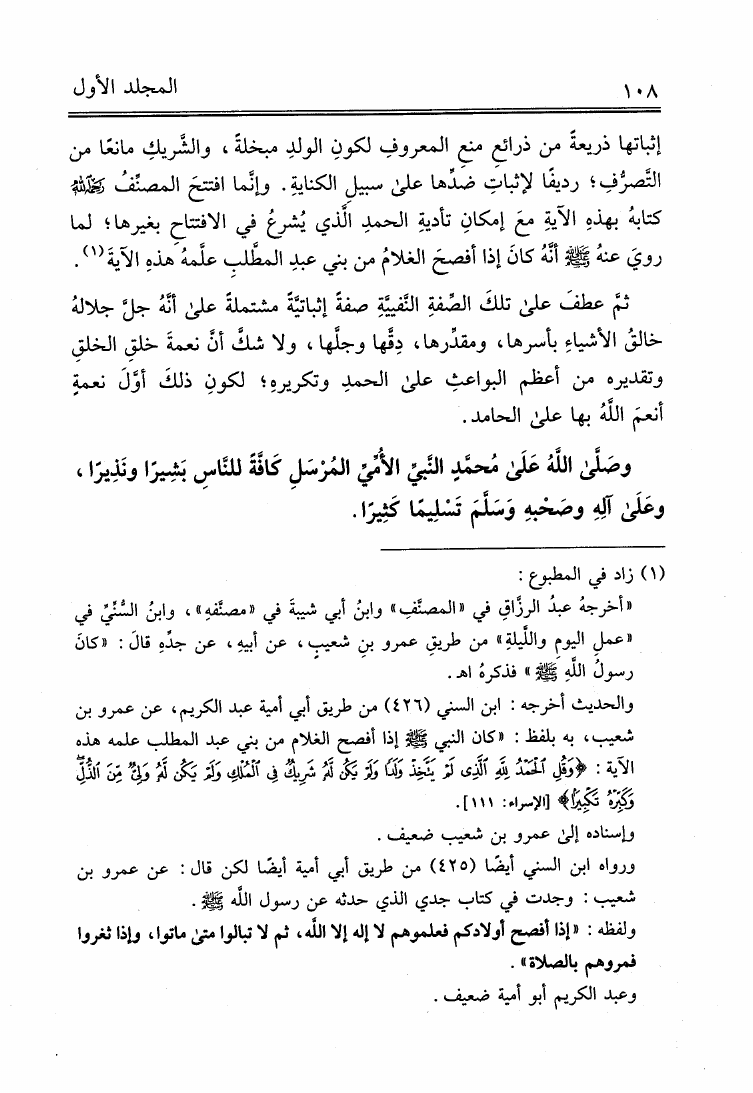 ١٠٨ المجلد الأول
إثباتها ذريعةً من ذرائعِ منعِ المعروفِ لكونِ الولدِ مبخلةً ، والشَّريكِ مانعًا من
التَّصرُّفِ؛ رديفًا لإثباتِ ضدِّها علىٰ سبيلِ الكنايةِ. وإنَّما افتتحَ المصنِّفُ رَحِمَهُ ٱللَّهُ
كتابهُ بهذهِ الآيةِ معَ إمكانِ تأديةِ الحمدِ الَّذي يُشرعُ في الافتتاحِ بغيرها؛ لما
رويَ عنهُ ﷺ أنَّهُ كانَ إذا أفصحَ الغلامُ من بني عبدِ المطَّلبِ علَّمهُ هذهِ الآيةَ(١).
ثمَّ عطفَ علىٰ تلكَ الصِّفةِ النَّفييَّةِ صفةً إثباتيَّةً مشتملةً علىٰ أنَّهُ جلَّ جلالهُ
خالقُ الأشياءِ بأسرها، ومقدِّرها، دِقَّها وجلَّها، ولا شكَّ أنَّ نعمةَ خلقِ الخلقِ
وتقديره من أعظمِ البواعثِ علىٰ الحمدِ وتكريرهِ؛ لكونِ ذلكَ أوَّلَ نعمةٍ
أنعمَ اللَّهُ بها علىٰ الحامد.
وصَلَّىٰ اللَّهُ عَلَىٰ مُحمَّدٍ النَّبيِّ الأُمِّيِّ المُرْسَلِ كَافَّةً للنَّاسِ بَشِيرًا ونَذِيرًا ،
وعَلَىٰ آلِهِ وصَحْبِهِ وَسَلَّمَ تَسْلِيمًا كَثِيرًا.
(١) زاد في المطبوع :
«أخرجهُ عبدُ الرزَّاقِ في «المصنَّفِ» وابنُ أبي شيبةَ في «مصنَّفهِ» ، وابنُ السُّنِّيِّ في
«عملِ اليومِ واللَّيلةِ» من طريقِ عمرو بنِ شعيبٍ، عن أبيهِ، عن جدِّهِ قالَ : «كانَ
رسولُ اللَّهِ ﷺ» فذكرهُ اهـ.
والحديث أخرجه : ابن السني (٤٢٦) من طريق أبي أمية عبد الكريم، عن عمرو بن
شعيب، به بلفظ : «كان النبي ﷺ إذا أفصح الغلام من بني عبد المطلب علمه هذه
الآية : ﴿وَقُلِ ٱلْحَمْدُ لِلَّهِ ٱلَّذِى لَمْ يَتَّخِذْ وَلَدًا وَلَمْ يَكُن لَّهُۥ شَرِيكٌ فِى ٱلْمُلْكِ وَلَمْ يَكُن لَّهُۥ وَلِىٌّ مِّنَ ٱلذُّلِّ
وَكَبِّرْهُ تَكْبِيرًۢا﴾ [الإسراء: ١١١].
وإسناده إلىٰ عمرو بن شعيب ضعيف.
ورواه ابن السني أيضًا (٤٢٥) من طريق أبي أمية أيضًا لكن قال : عن عمرو بن
شعيب : وجدت في كتاب جدي الذي حدثه عن رسول الله ﷺ .
ولفظه : «إذا أفصح أولادكم فعلموهم لا إله إلا الله، ثم لا تبالوا متىٰ ماتوا، وإذا ثغروا
فمروهم بالصلاة» .
وعبد الكريم أبو أمية ضعيف.